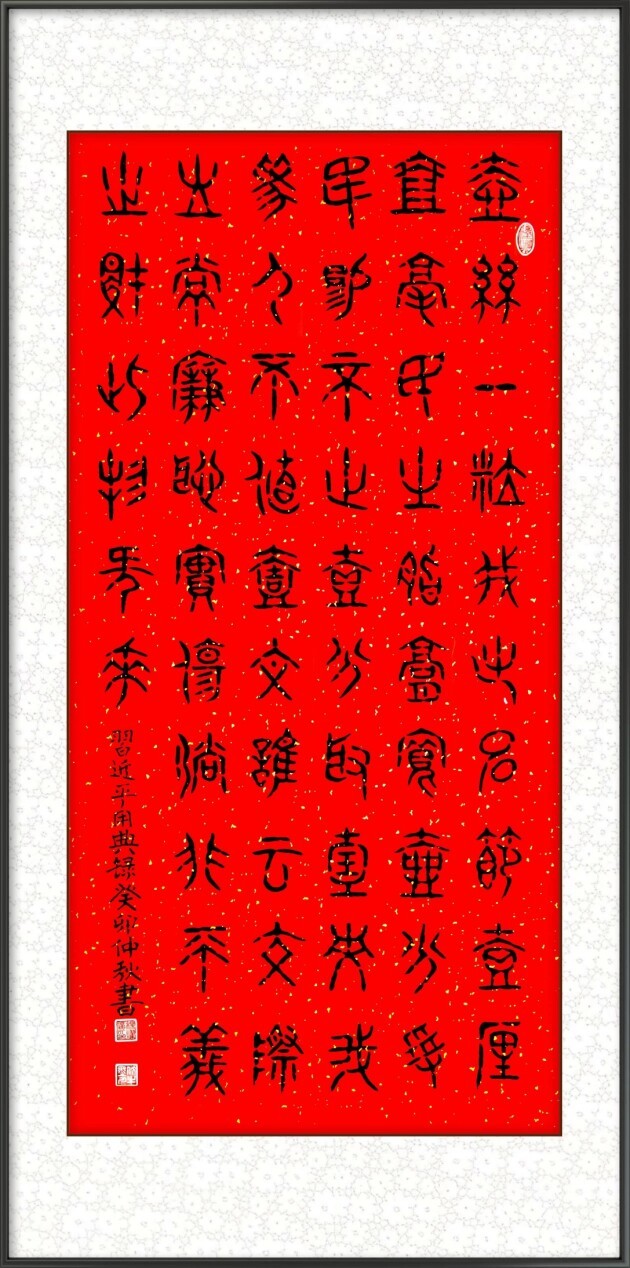 壹絲一粒我之名節壹厘
壹毫民之脂膏寬壹分民
受賜不止壹分取壹文我
爲人不值壹文誰云交際
之常廉恥實傷倘非不義
之財此物何來
習近平用典録癸卯仲秋書